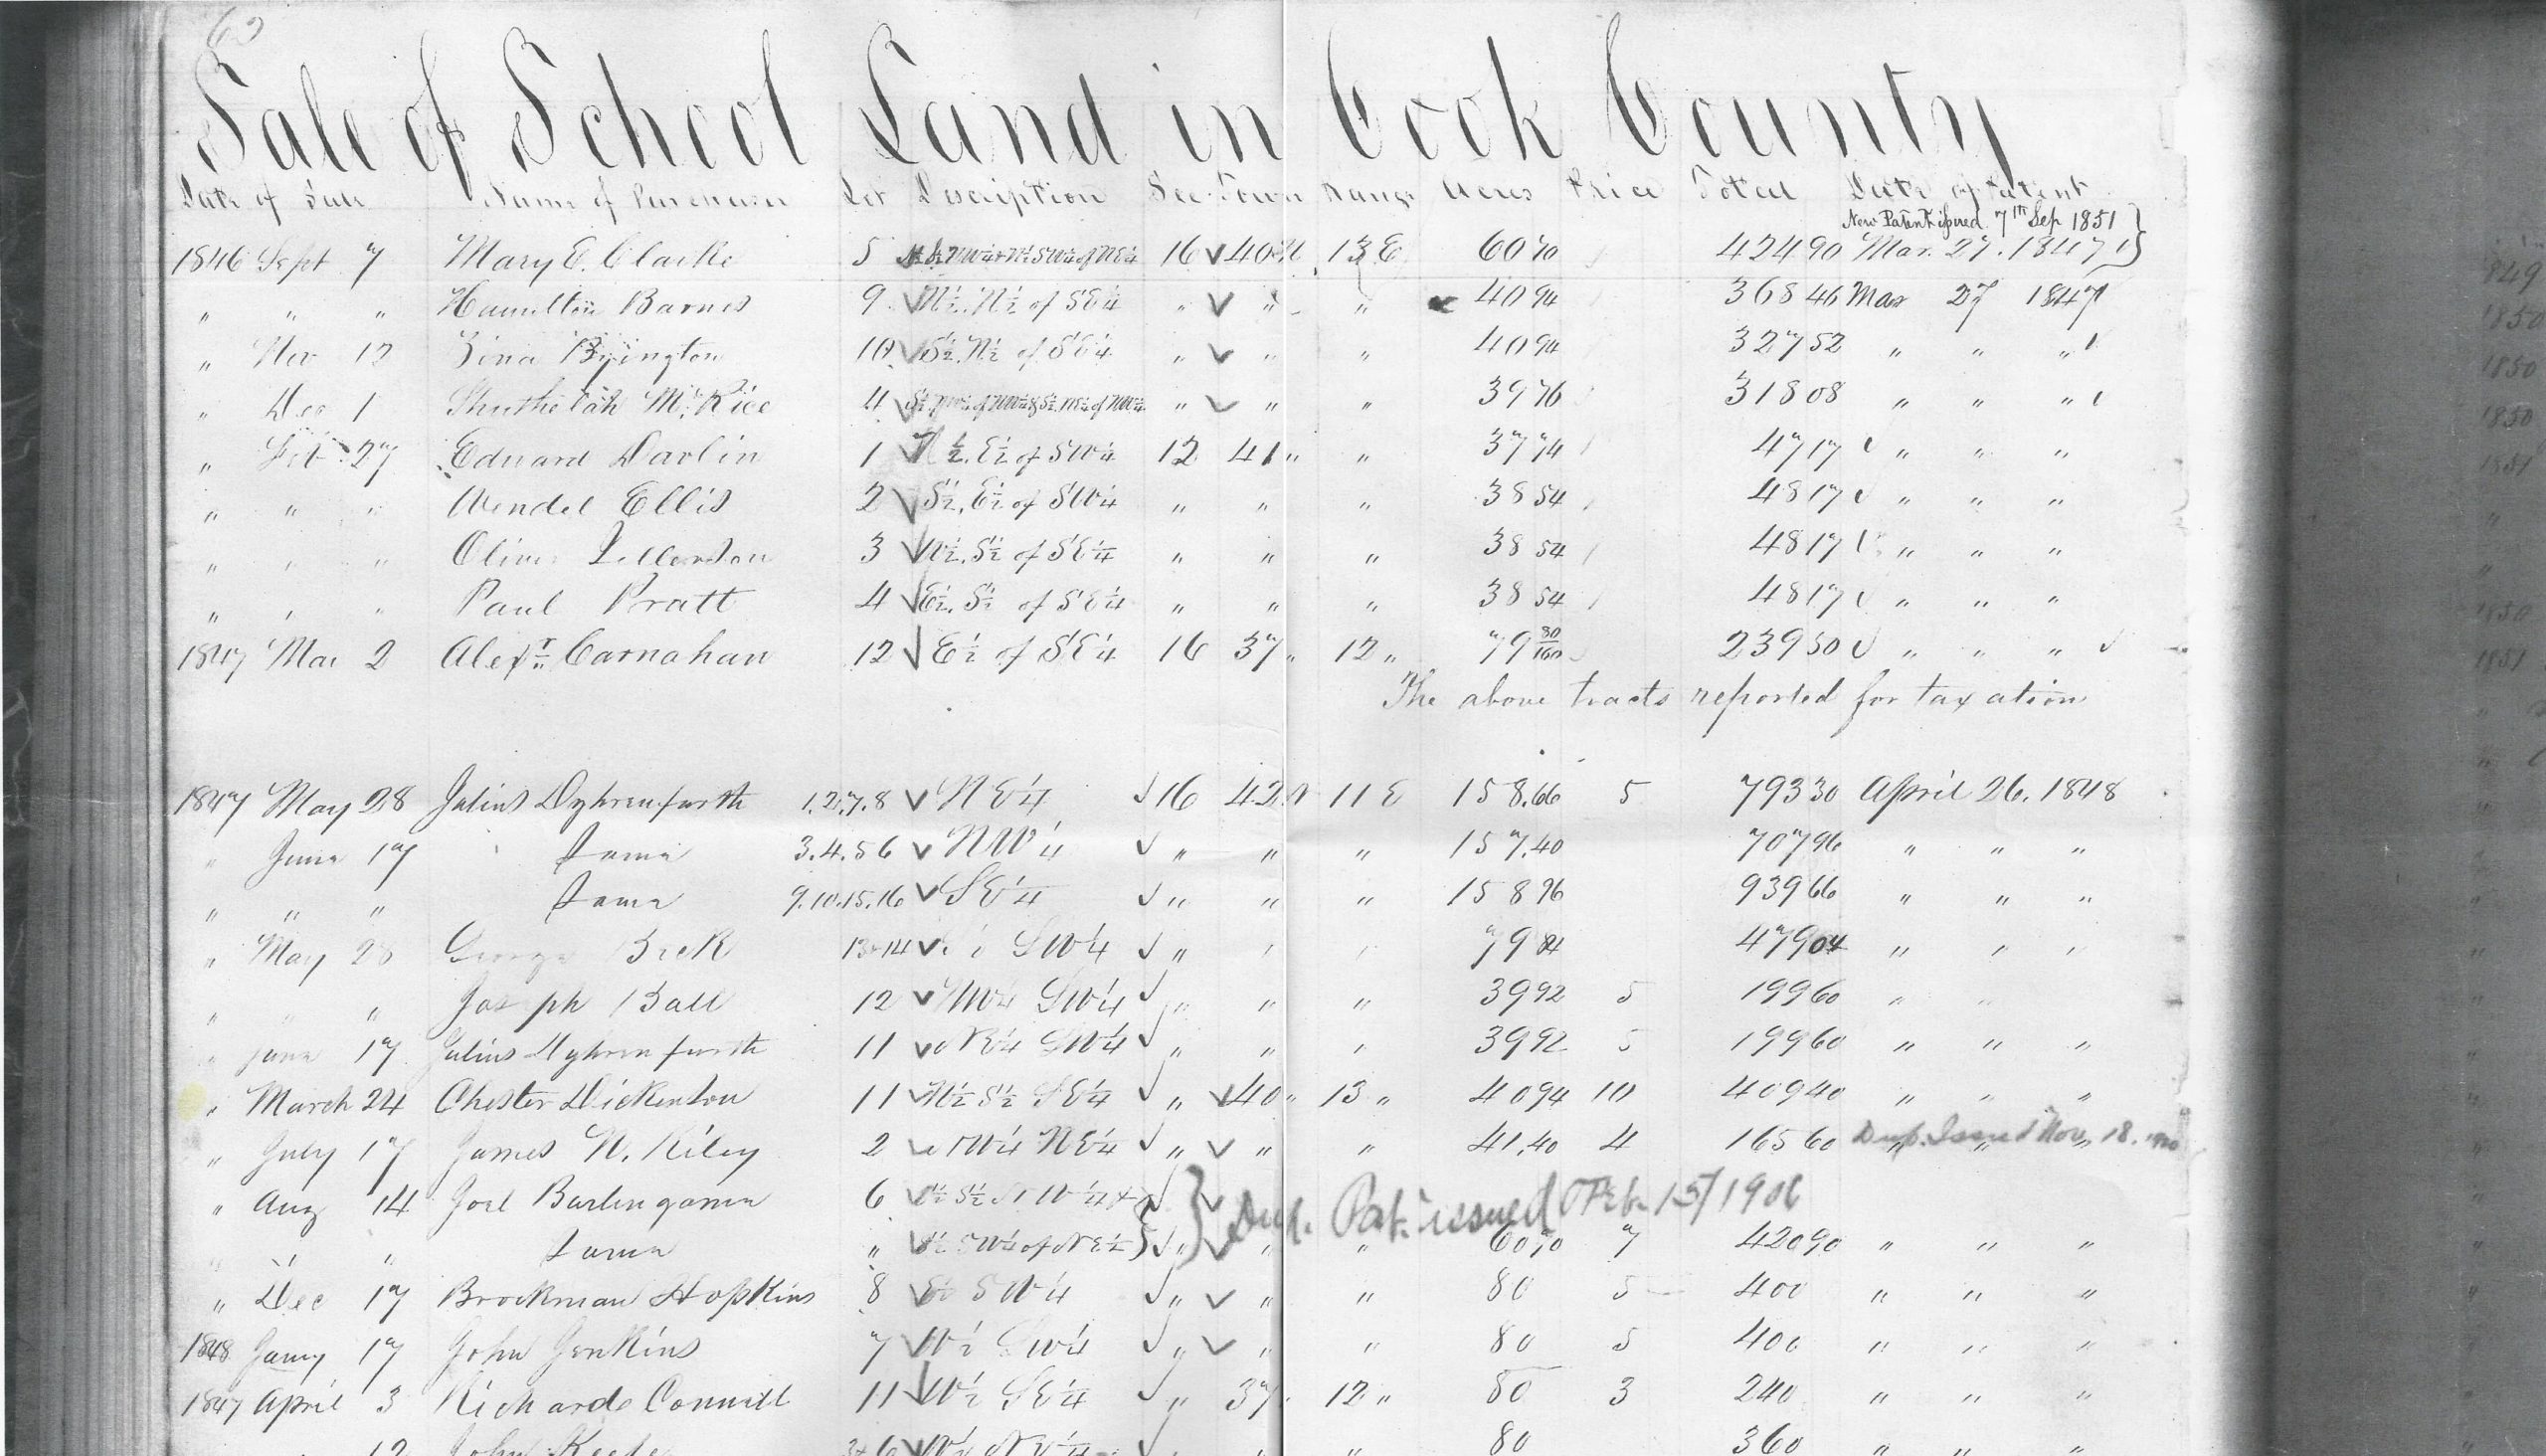 63
Sale of School Land in Cook County
Date of Sale Name of Purchaser Lot Description Sec Town Range Acres Price Total Date of Patent
New Patent issued 7th Sep 1851 }
1846 Sept 7 Mary E. Clarke 5 16 40 N 13 E 60 70 424 90 Mar. 27. 1847
" " " Hamilton Barnes 9 N½. N½ of SE¼ " " " 40 94 368 46 Mar 27 1847
" Nov 12 Zina Byington 10 S½. N½ of SE¼ " " " 40 94 327 52 " " "
" Dec 1 Shuthelah Mc.Rice 4 " " " 39 76 318 08 " " "
" Feb 27 Edward Darlin 1 N½. E½ of SW¼ 12 41 " " 37 74 47 17 " " "
" " " Wendel Ellis 2 S½. E½ of SW¼ " " " 38 54 48 17 " " "
" " " Oliver 3 W½. S½ of SE¼ " " " 38 54 48 17 " " "
" " " Paul Pratt 4 E½. S½ of SE¼ " " " 38 54 48 17 " " "
1847 Mar 2 Alexr Carnahan 12 E½ of SE¼ 16 37 " 12 " 79 80/100 239 50 " " "
The above tracts reported for taxation
1847 May 28 Julius Dyhrenfurth 1.2.7.8 NE¼ 16 42 N 11 E 158.66 5 793 30 April 26. 1848
" June 17 Same 3.4.5 6 NW¼ " " " 157.40 707 96 " " "
" " " Same 9.10.15.16 SE¼ " " " 158 96 939 66 " " "
" May 28 George Beck 13+14 SW¼ " " " 79 84 479 04 " " "
" " " Joseph Ball 12 NW¼ SW¼ " " " 39 92 5 199 60 " "
" June 17 Julius Dyhrenfurth 11 NE¼ SW¼ " " " 39 92 5 199 60 " " "
" March 24 Chester Dickenson 11 N½ S½ SE¼ " 40 " 13 " 40 94 10 409 40 " " "
" July 17 James N. Kiley 2 NW¼ NE¼ " " " 41.40 4 165 60 Dup. Issued Nov. 18.
" Aug 14 Joel Burlingame 6 S½ NW¼ + } Dup. Pat. issued Feb. 15/1906
" " " Same " SW¼ of NE¼ } " " " 60 70 7 420 90 " " "
" Dec 17 Brockman Hopkins 8 E½ SW¼ " " " 80 5 400 " " "
1848 Jany 17 John Jenkins 7 W½ SW¼ " " " 80 5 400 " " "
1847 April 3 Richard Connill 11 W½ SE¼ " 37 " 12 " 80 3 240 " " "
12 John 80 360 " " "